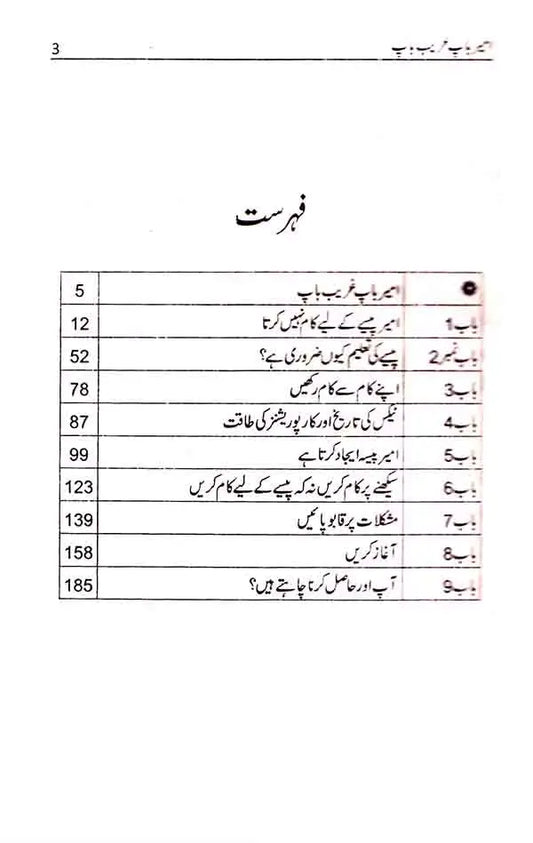 امیر باپ غریب باپ 3
فہرست
امیر باپ غریب باپ 5
باب 1 امیر پیسے کے لیے کام نہیں کرتا 12
باب نمبر 2 پیسے کی تعلیم کیوں ضروری ہے؟ 52
باب 3 اپنے کام سے کام رکھیں 78
باب 4 ٹیکس کی تاریخ اور کارپوریشنز کی طاقت 87
باب 5 امیر پیسہ ایجاد کرتا ہے 99
باب 6 سیکھنے پر کام کریں نہ کہ پیسے کے لیے کام کریں 123
باب 7 مشکلات پر قابو پائیں 139
باب 8 آغاز کریں 158
باب 9 آپ اور حاصل کرنا چاہتے ہیں؟ 185